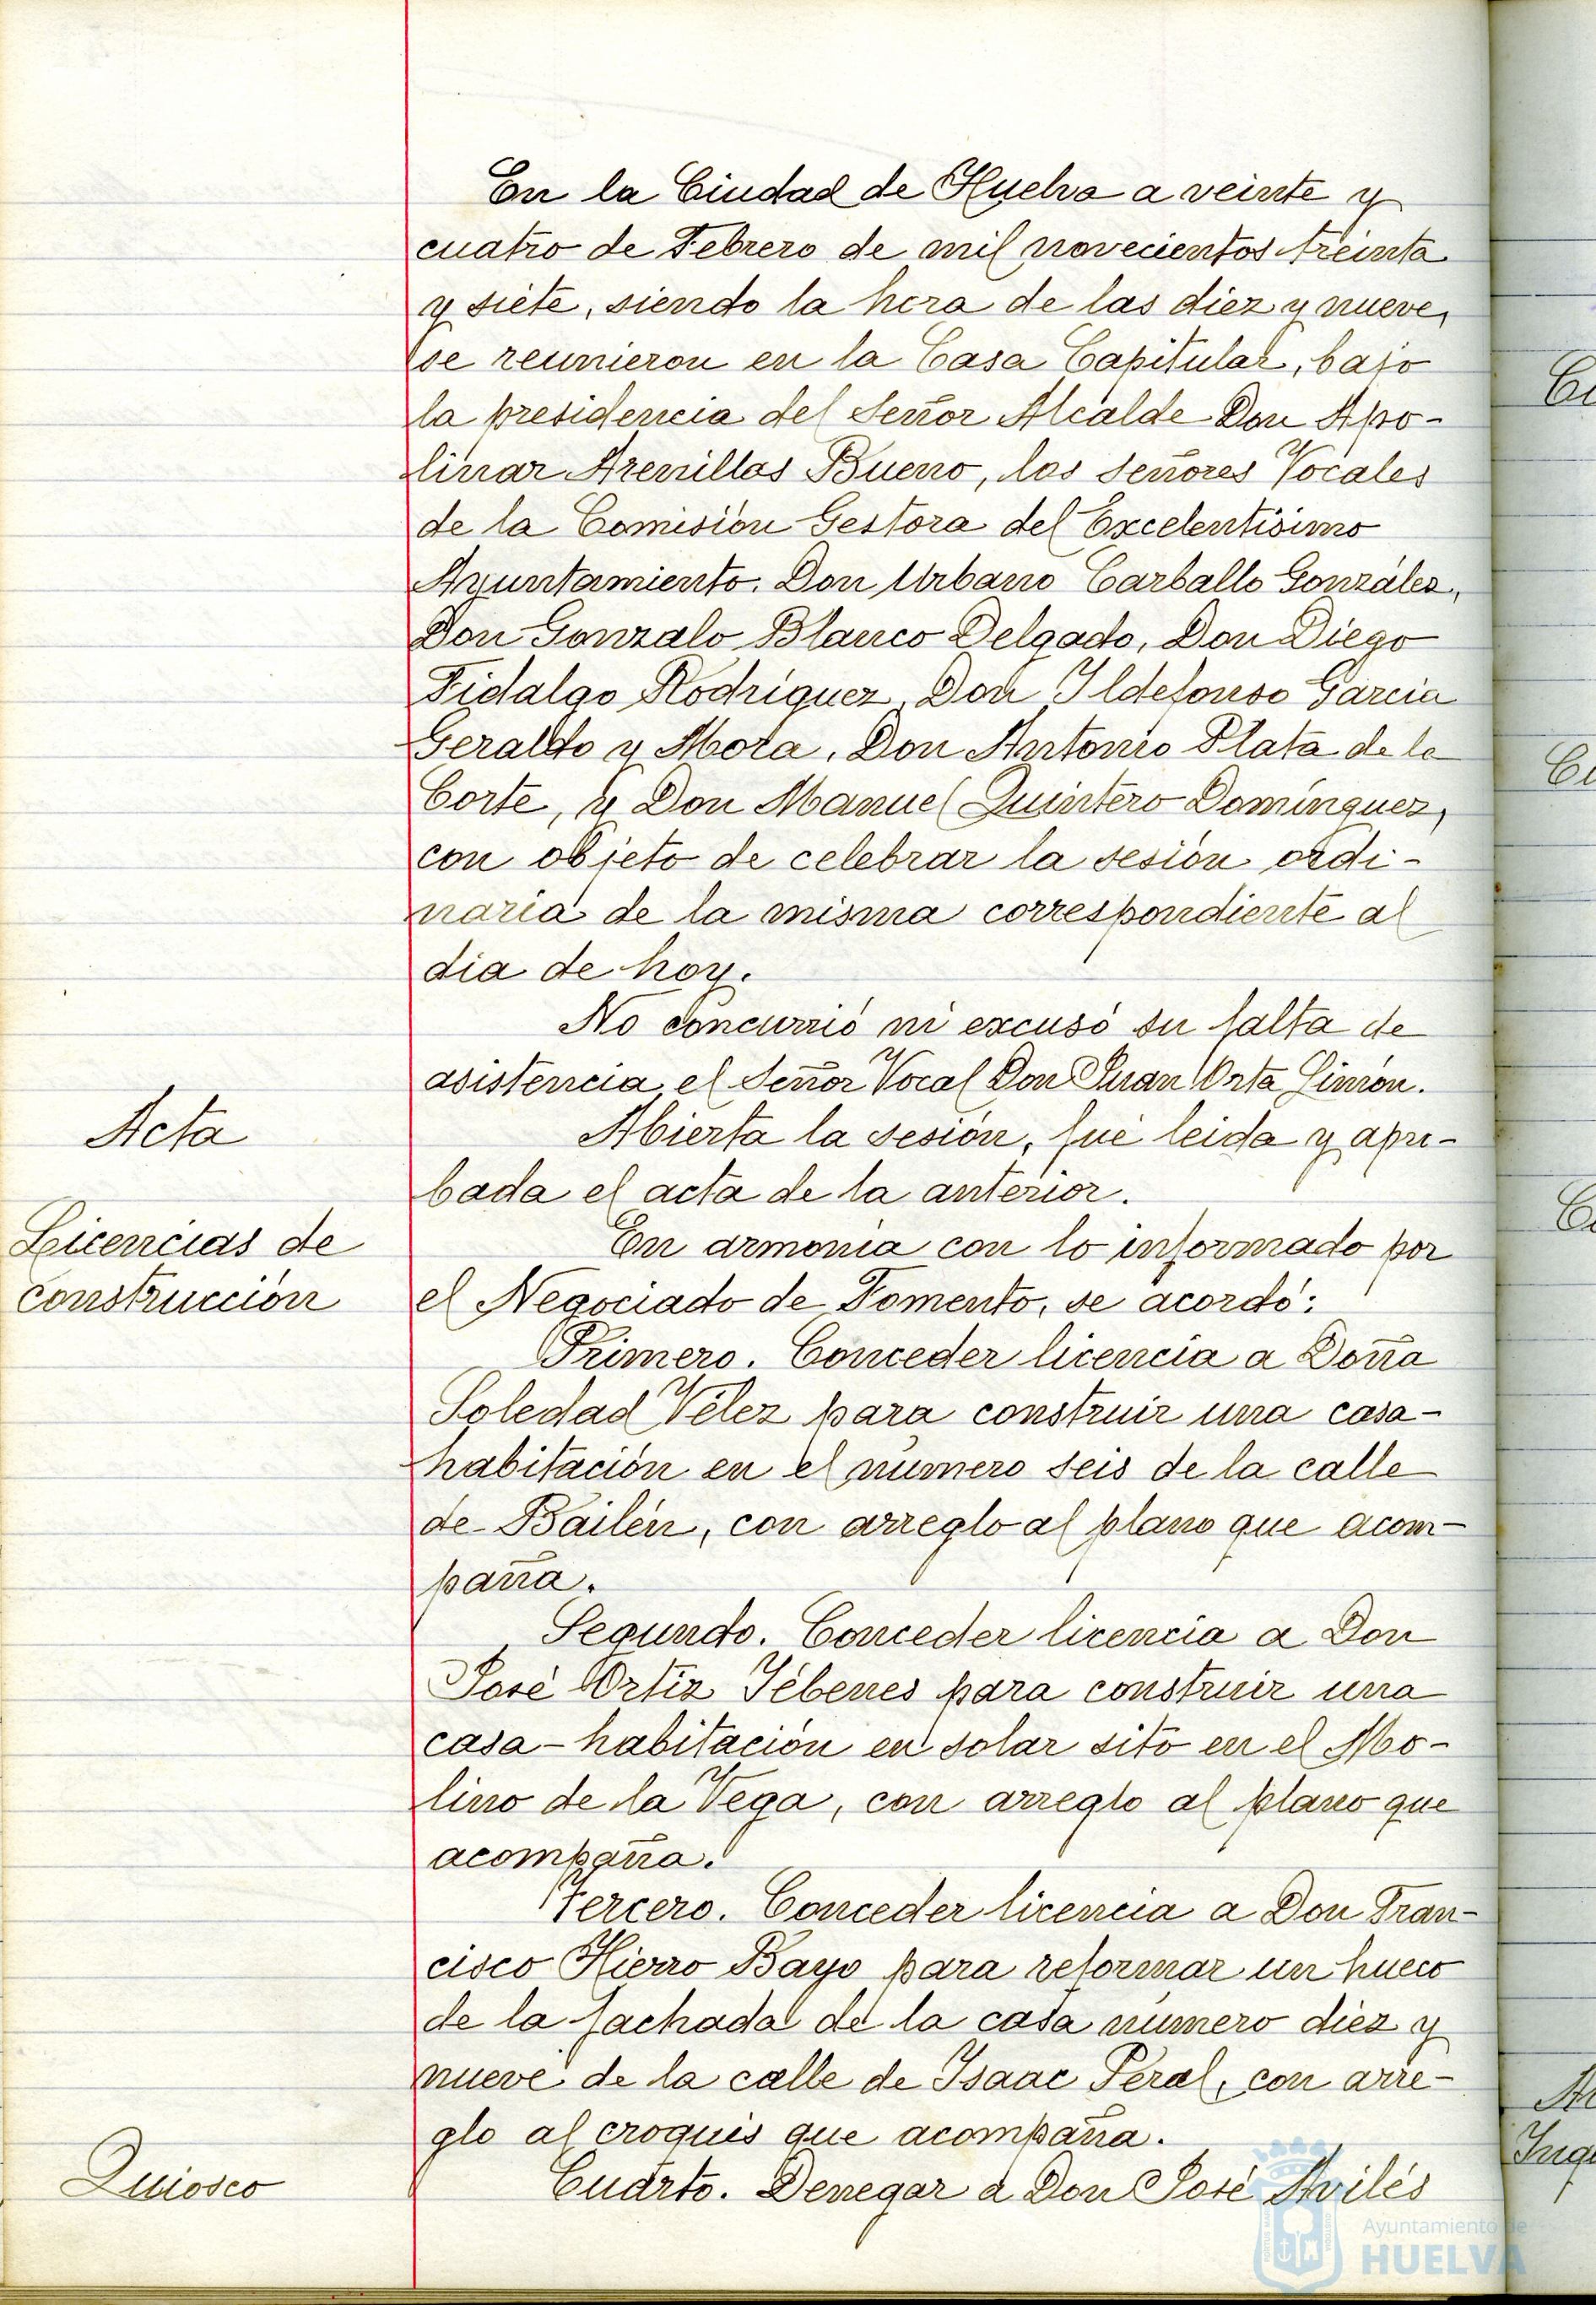 En la Ciudad de Huelva a veinte y
cuatro de Febrero de mil novecientos treinta
y siete, siendo la hora de las diez y nueve,
se reunieron en la Casa Capitular, bajo
la presidencia del Señor Alcalde Don Apo-
linar Arenillas Bueno, los Señores Vocales
de la Comisión Gestora del Excelentísimo
Ayuntamiento, Don Urbano Carballo González,
Don Gonzalo Blanco Delgado, Don Diego
Fidalgo Rodriguez, Don Ildefonso Garcia
Geraldo y Mora, Don Antonio Plata de la
Corte, y Don Manuel Quintero Dominguez,
con objeto de celebrar la sesión ordi-
naria de la misma correspondiente al
dia de hoy.
No concurrió ni excusó su falta de
asistencia el Señor Vocal Don Juan Orta Limón.
Acta
Abierta la sesión, fué leida y apro-
bada el acta de la anterior.
Licencias de
construcción
En armonia con lo informado por
el Negociado de Fomento, se acordó:
Primero. Conceder licencia a Doña
Soledad Vélez para construir una casa-
habitación en el número seis de la calle
de Bailén, con arreglo al plano que acom-
paña.
Segundo. Conceder licencia a Don
José Ortiz Yébenes para construir una
casa-habitación en solar sito en el Mo-
lino de la Vega, con arreglo al plano que
acompaña.
Tercero. Conceder licencia a Don Fran-
cisco Hierro Bayo para reformar un hueco
de la fachada de la casa número diez y
nueve de la calle de Isaac Peral, con arre-
glo al croquis que acompaña.
Quiosco
Cuarto. Denegar a Don José Avilés
Ayuntamiento de
HUELVA